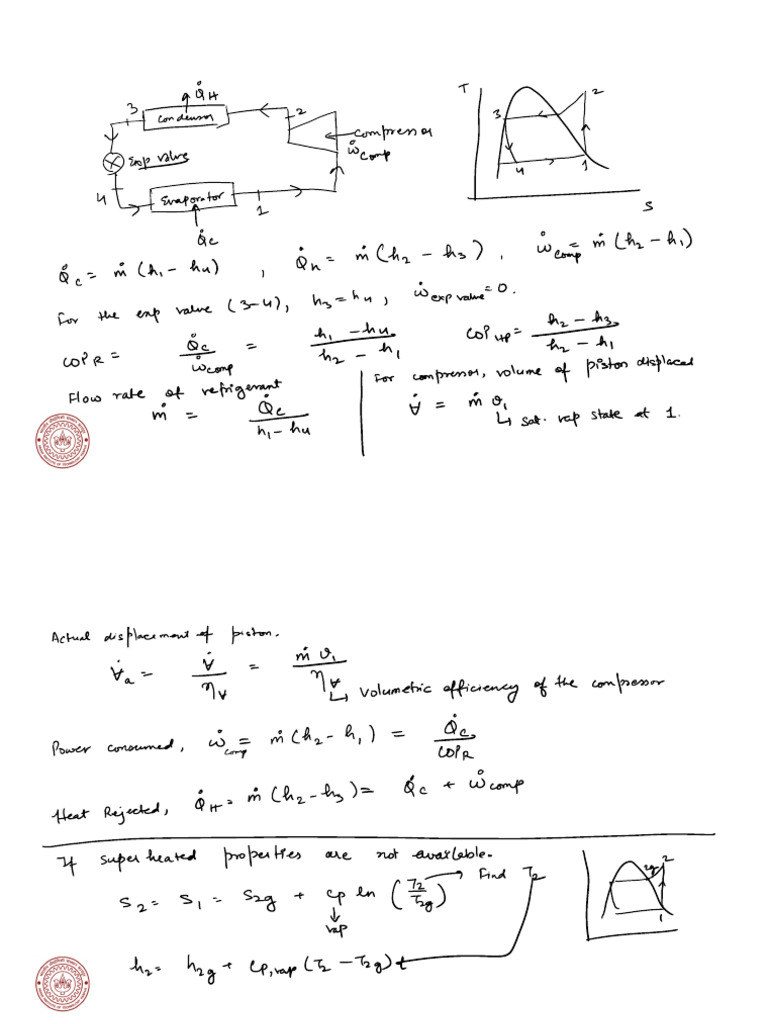 Q̇H
T
2
3
Condensor
2
3
compressor
ẇcomp
Exp valve
4
Evaporator
1
4
1
Q̇c
S
Q̇c = ṁ (h1 - h4) , Q̇H = ṁ (h2 - h3) , ẇcomp = ṁ (h2 - h1)
For the exp valve (3-4), h3 = h4 , ẇexp valve = 0.
COPR = Q̇c / ẇcomp = (h1 - h4) / (h2 - h1)
COPHP = (h2 - h3) / (h2 - h1)
Flow rate of refrigerant
ṁ = Q̇c / (h1 - h4)
For compressor, volume of piston displaced
V̇ = ṁ v1
↳ Sat. vap state at 1.
Actual displacement of piston.
V̇a = V̇ / ηV = ṁ v1 / ηV
↳ Volumetric efficiency of the compressor
Power consumed, ẇcomp = ṁ (h2 - h1) = Q̇c / COPR
Heat Rejected, Q̇H = ṁ (h2 - h3) = Q̇c + ẇcomp
If super heated properties are not available.
S2 = S1 = S2g + cp ln (T2 / T2g) → Find T2
↓
vap
2g
2
1
h2 = h2g + cp,vap (T2 - T2g)